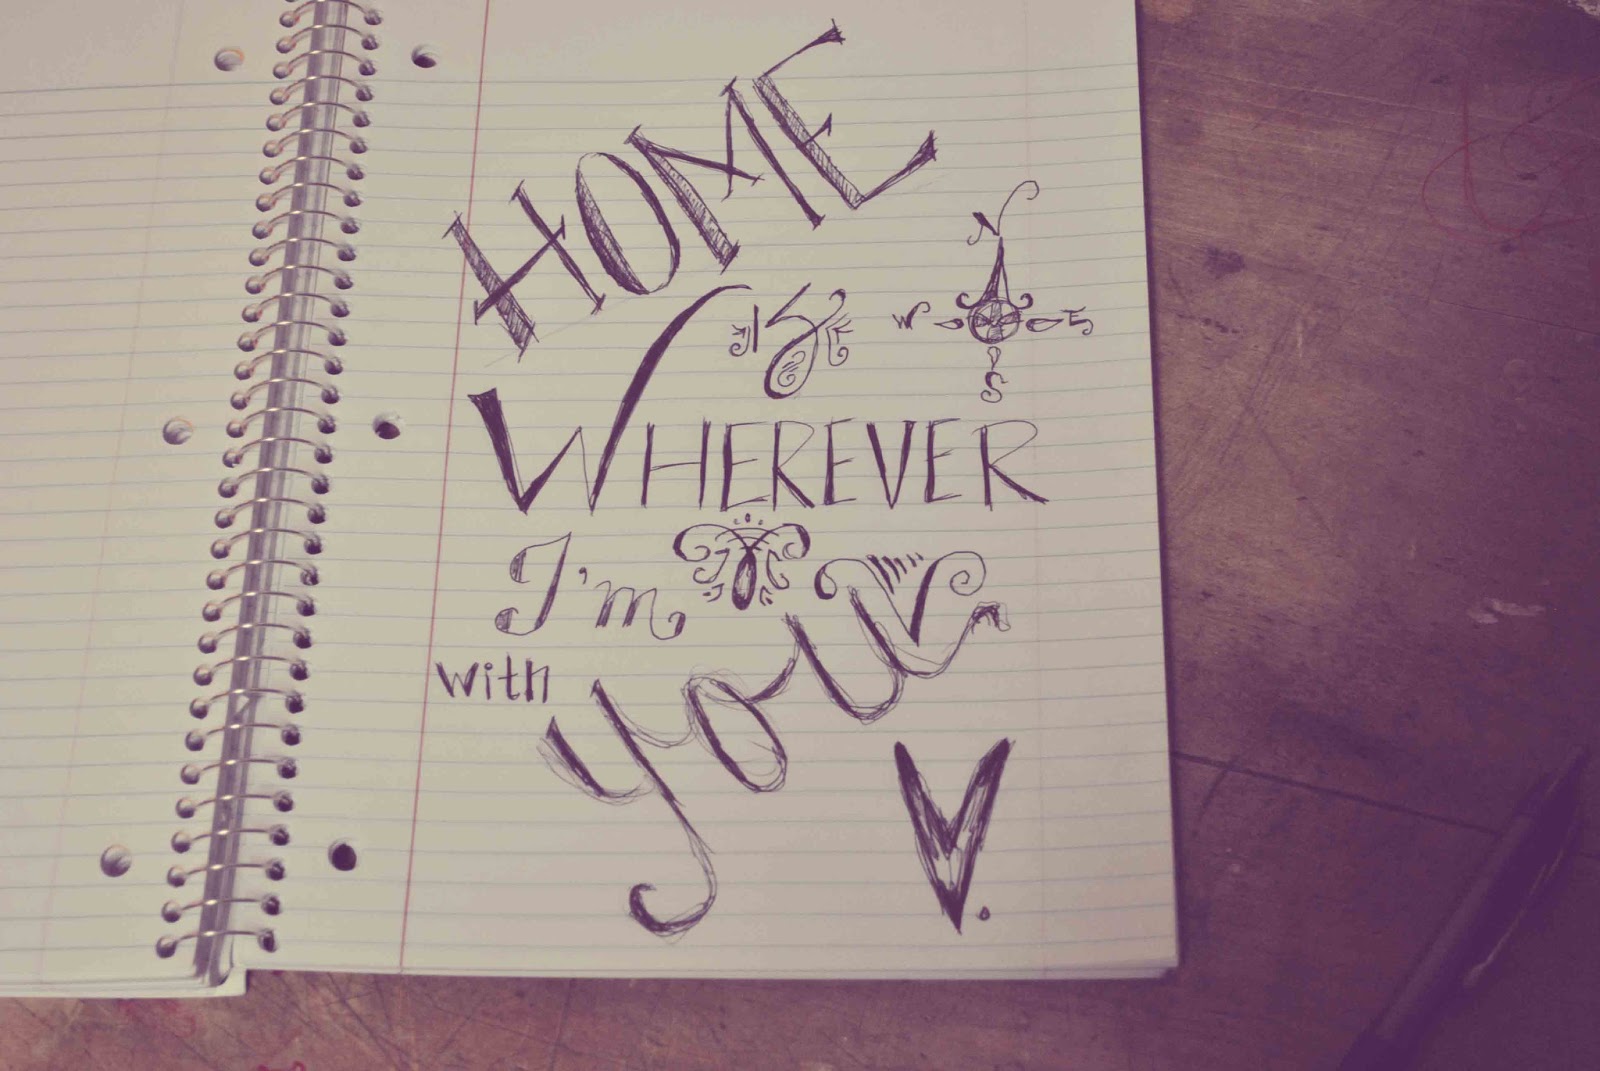 HOME
is
WHEREVER
I'm
with
you
N
W E
S
V.